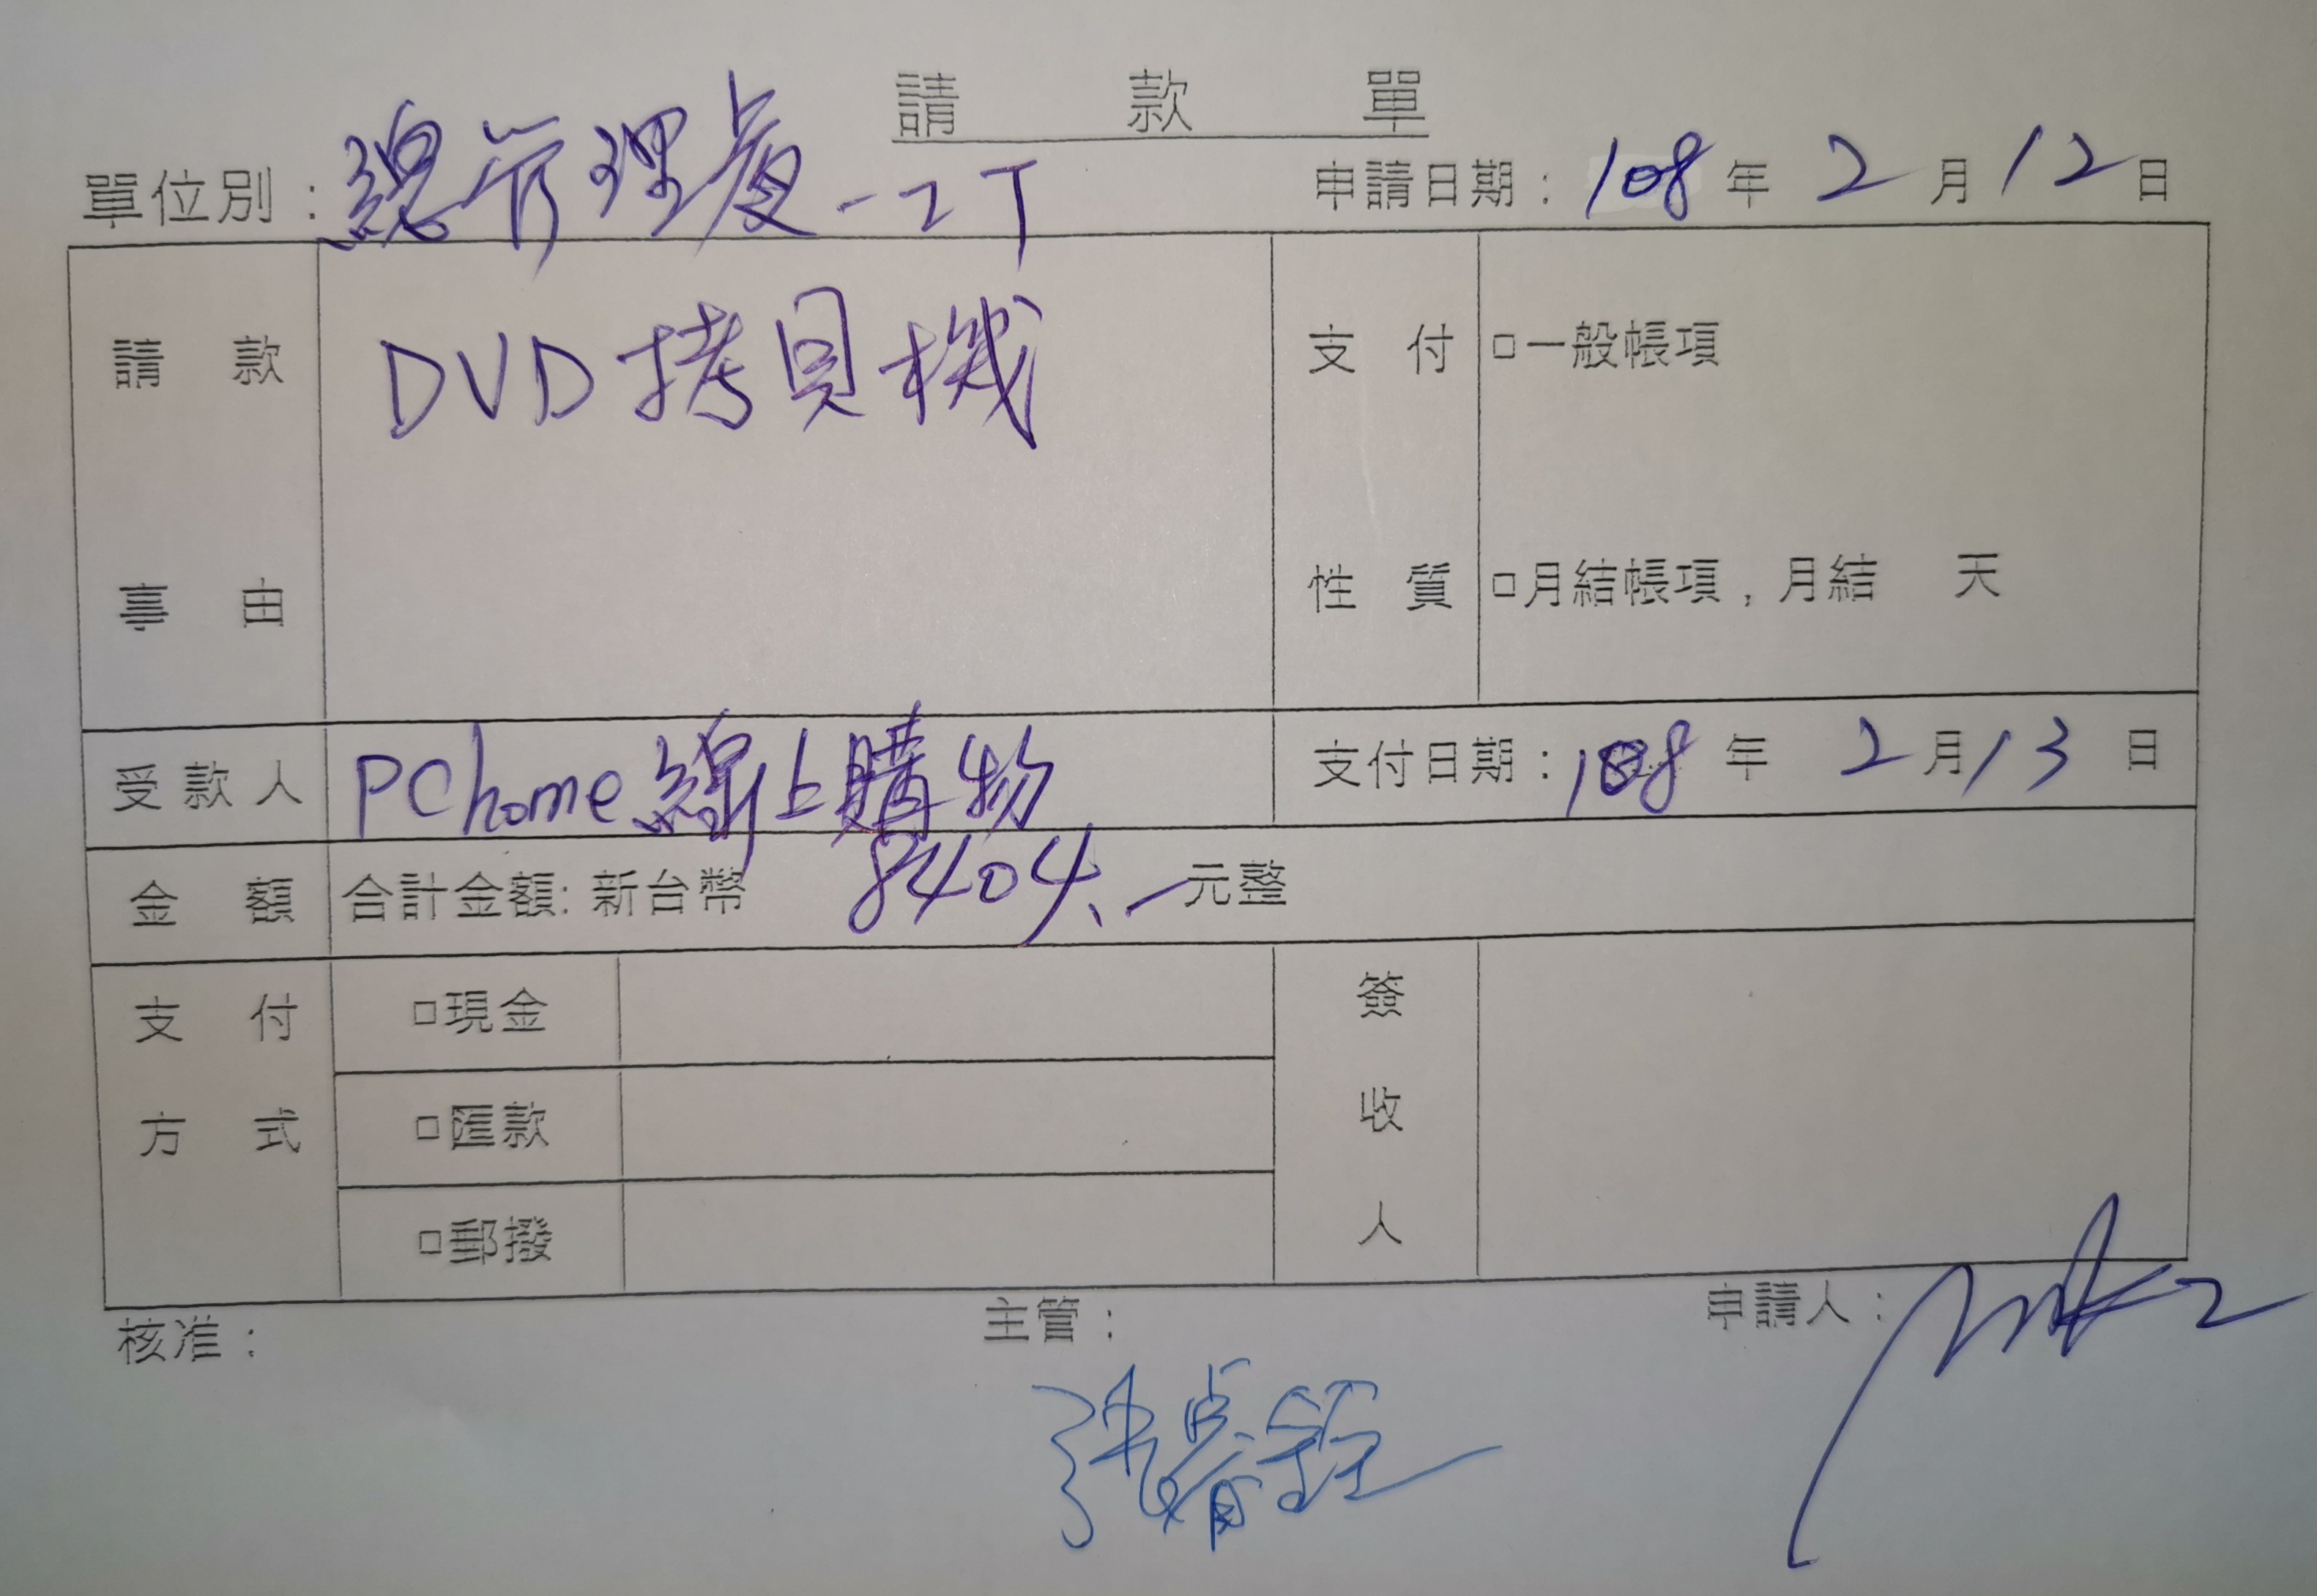 請款單
單位別：總管理處-IT 申請日期：108年2月12日
請款事由 DVD拷貝機 支付性質 □一般帳項
□月結帳項，月結 天
受款人 PChome線上購物 支付日期：108年2月13日
金額 合計金額：新台幣 8404、-元整
支付方式 □現金 簽收人
□匯款
□郵撥
核准： 主管： 申請人：